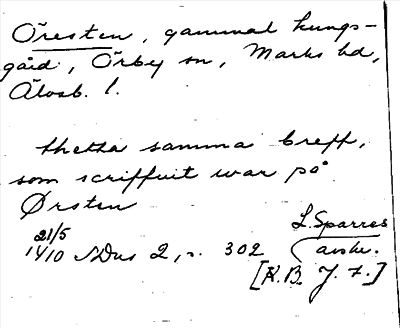 Öresten, gammal kungs-
gård, Örby sn, Marks hd,
Älvsb. l.
thetta samma breff,
som scriffuit war på
Ørsten
L. Sparres
21/5
1410 SDns 2, s. 302
avskr.
[K. B. J. 7.]